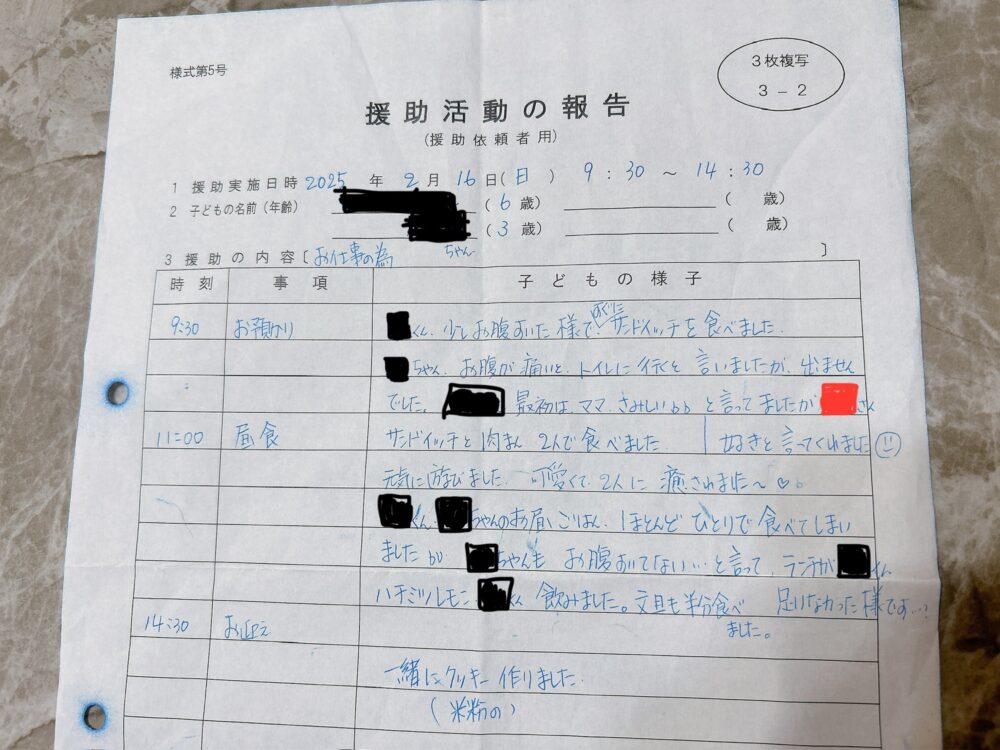 様式第5号
3枚複写
3-2
援助活動の報告
(援助依頼者用)
1 援助実施日時 2025年2月16日(日) 9:30～14:30
2 子どもの名前(年齢) (6歳) (歳)
(3歳) (歳)
ちゃん
3 援助の内容〔お仕事の為〕
時刻 事項 子どもの様子
9:30 お預かり くん、少しお腹すいた様で、すぐにサンドイッチを食べました。
ちゃん、お腹が痛いと、トイレに行くと言いましたが、出ません
でした。 最初は、ママ、さみしい と言ってましたが さん
11:00 昼食 サンドイッチと肉まん 2人で食べました。 好きと言ってくれました
元気に遊びました。可愛くて2人に癒されました〜♡
くん、ちゃんのお昼ごはん、ほとんどひとりで食べてしまい
ましたが ちゃんも お腹すいてない…と言って、ランチが くん
ハチミツレモン くん 飲みました。文旦も半分食べ 足りなかった様です…
ました。
14:30 お迎え
一緒にクッキー作りました。
(米粉の)